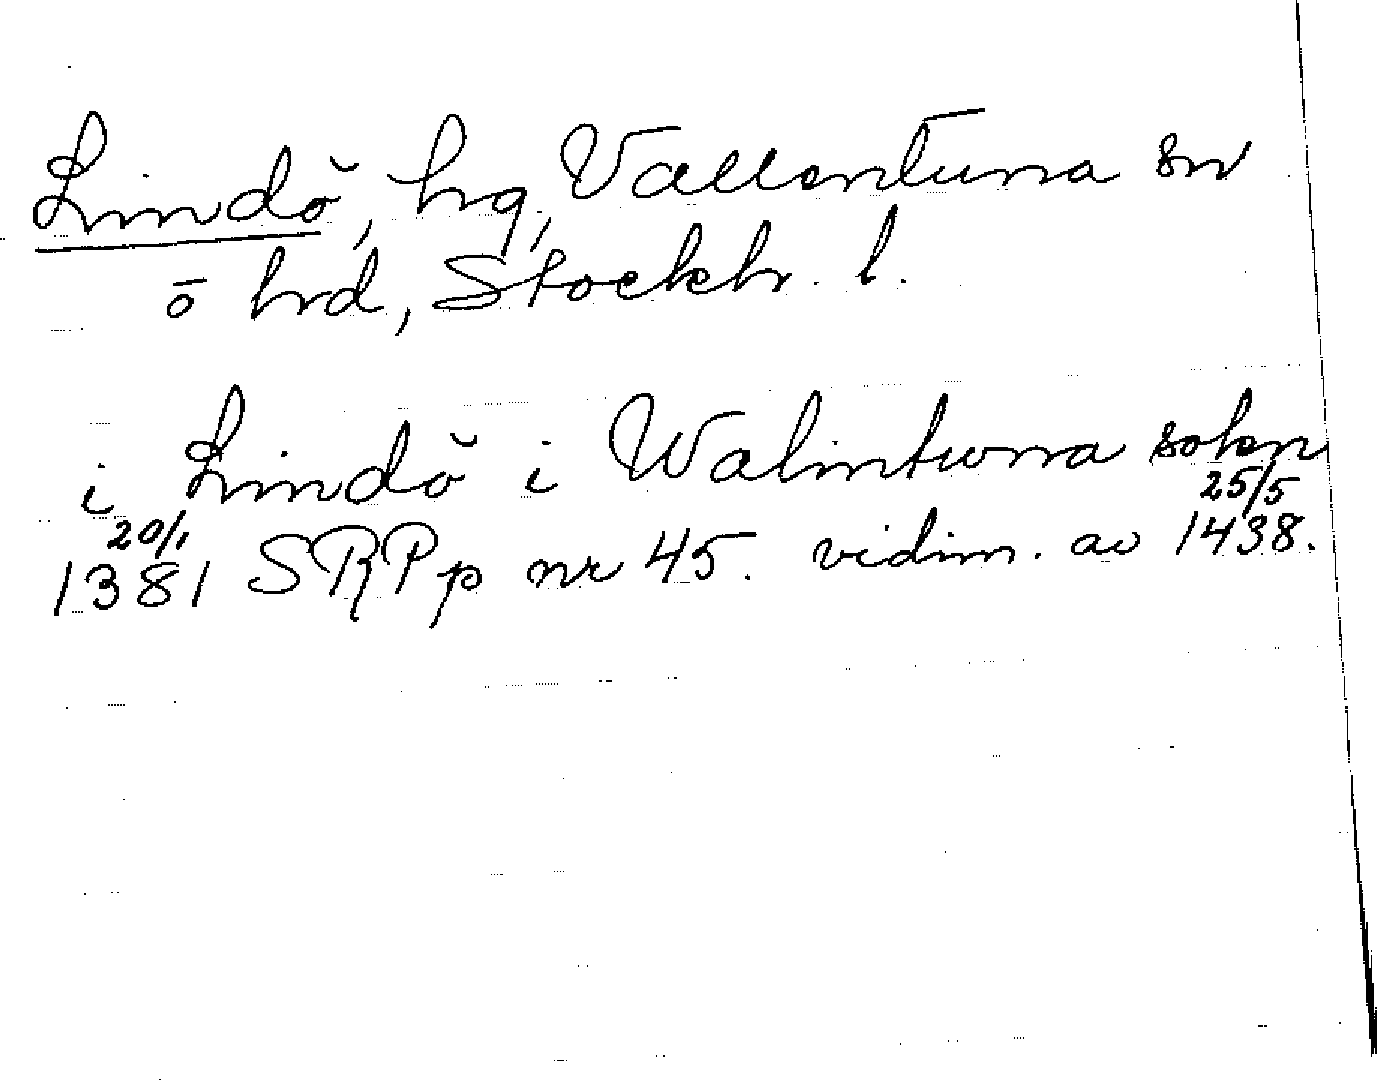 Lindö, hg, Vallentuna sn
ö hrd, Stockh. l.
i Lindö i Walintuna sokn
20/1 25/5
1381 SRPp nr 45. vidim. av 1438.